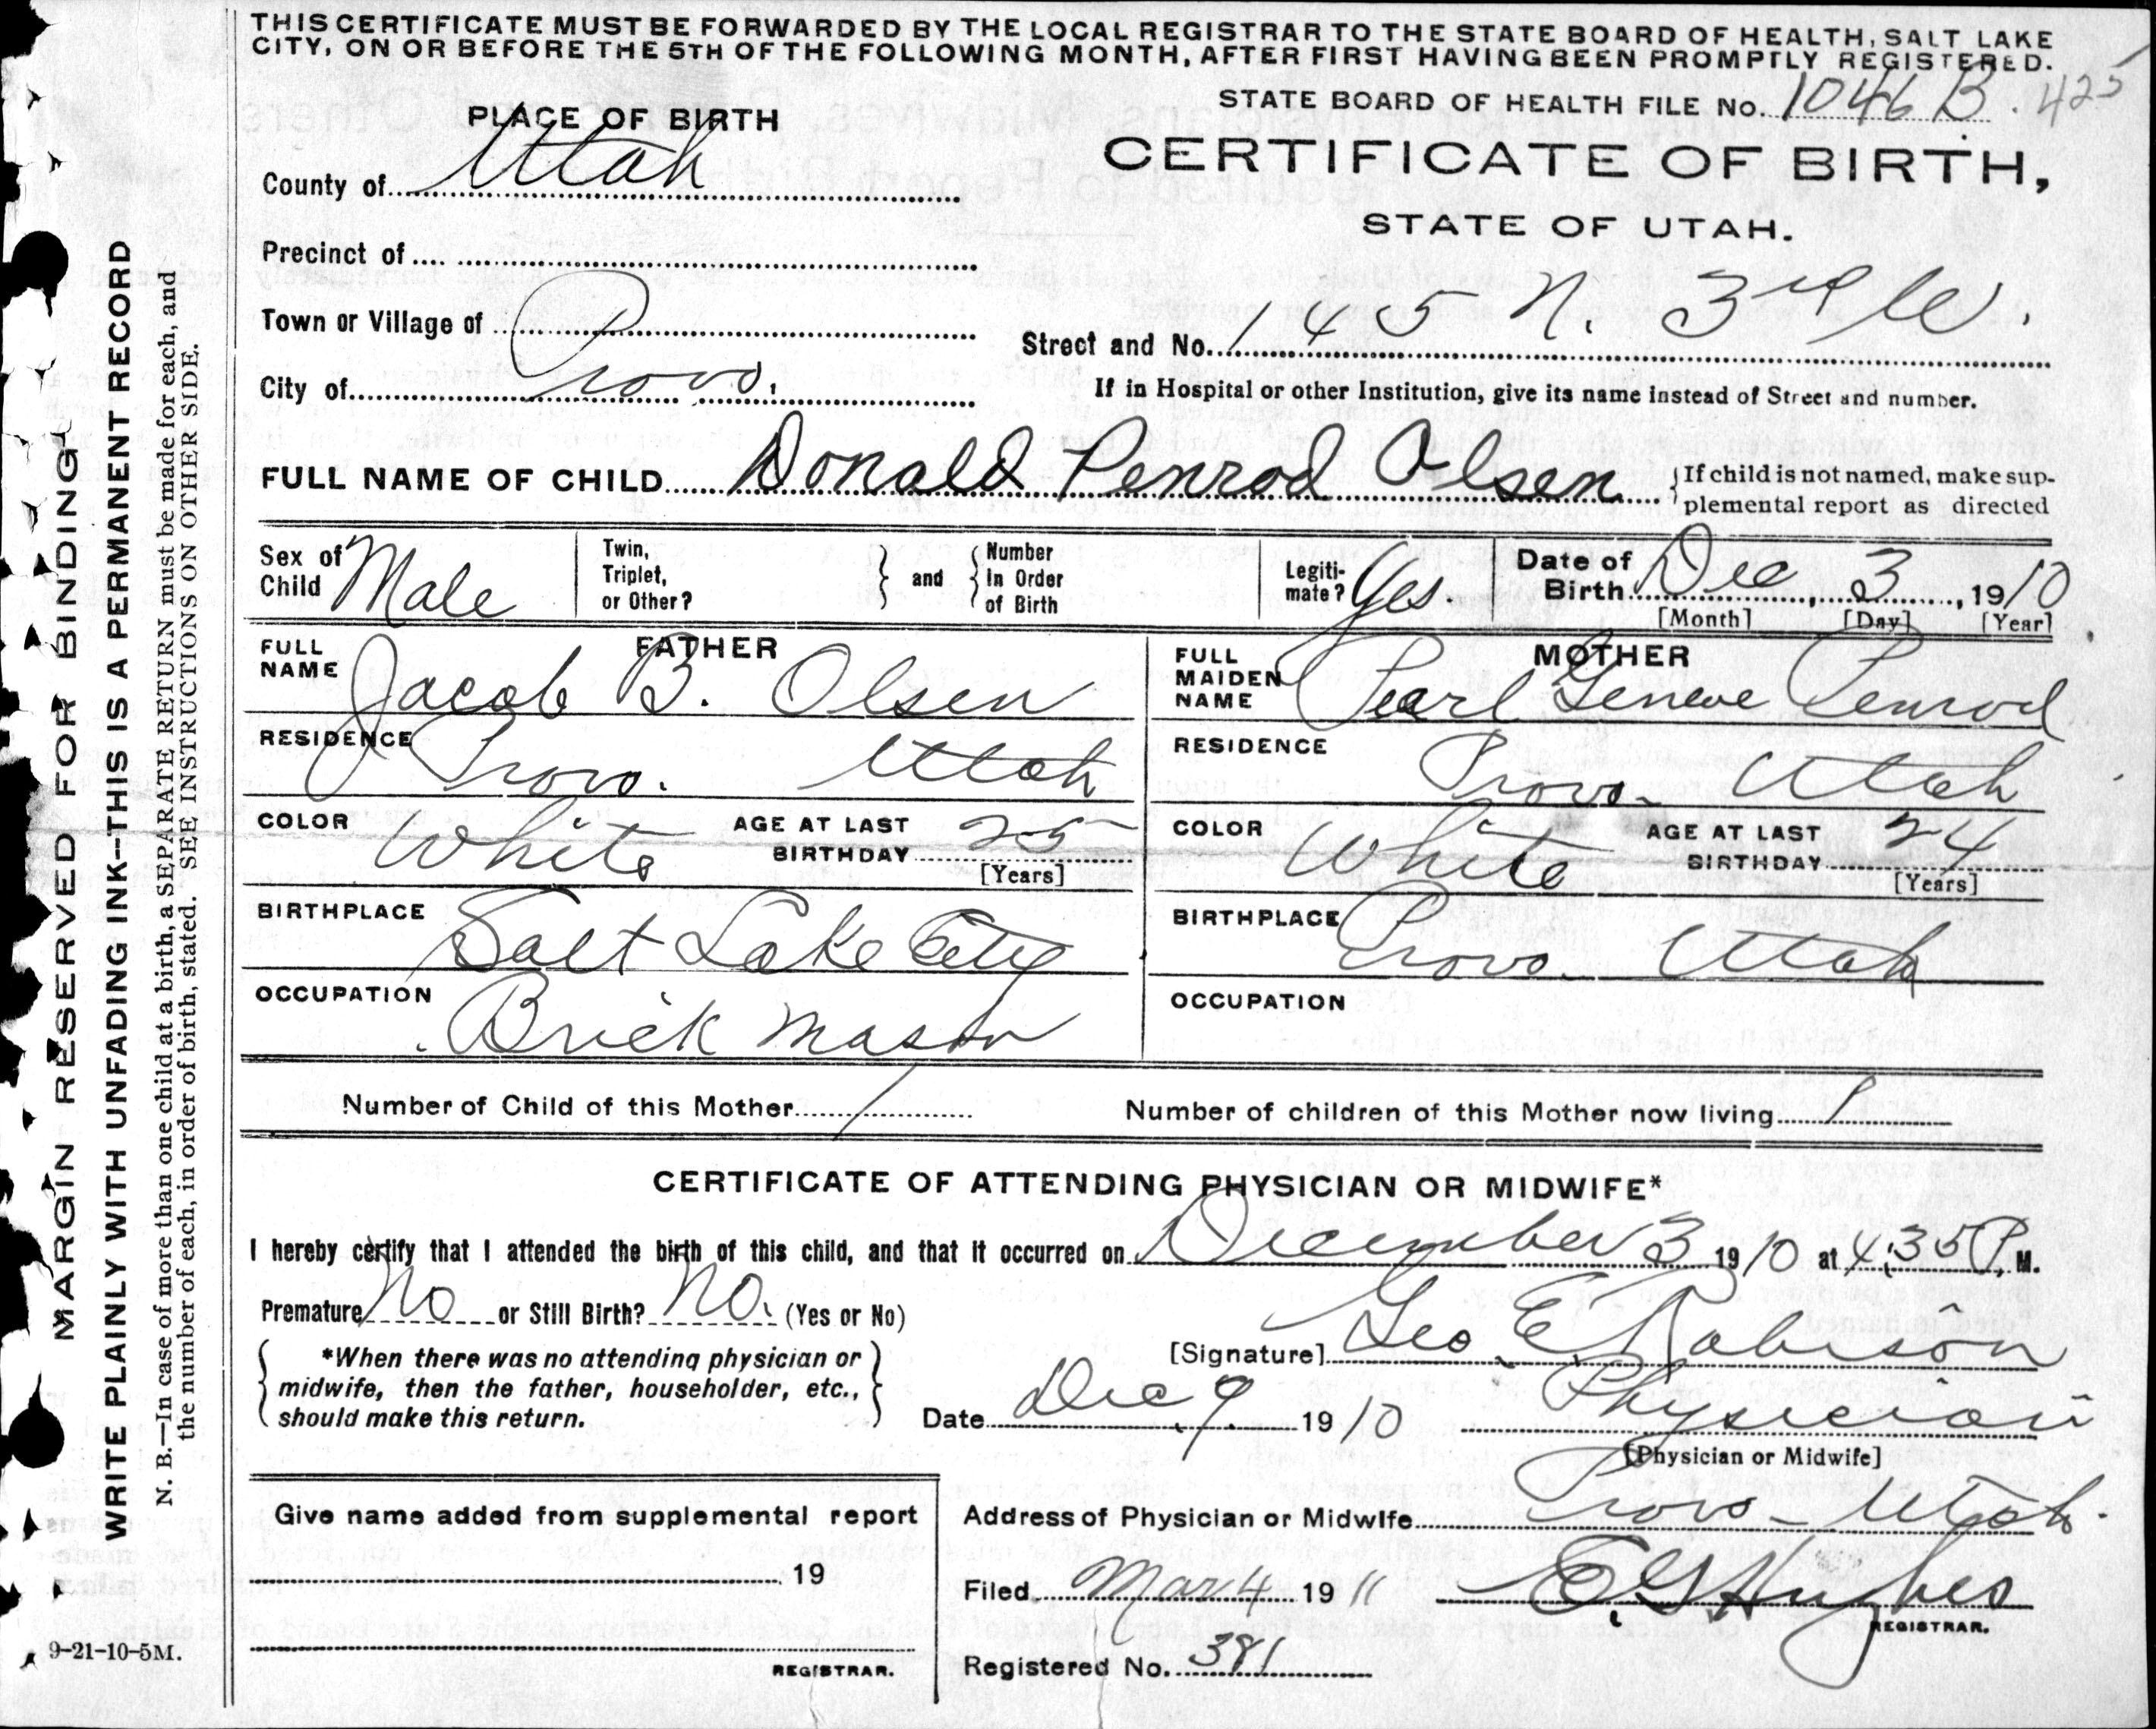 THIS CERTIFICATE MUST BE FORWARDED BY THE LOCAL REGISTRAR TO THE STATE BOARD OF HEALTH, SALT LAKE
CITY, ON OR BEFORE THE 5TH OF THE FOLLOWING MONTH, AFTER FIRST HAVING BEEN PROMPTLY REGISTERED.
STATE BOARD OF HEALTH FILE No. 1046 B. 425
PLACE OF BIRTH
CERTIFICATE OF BIRTH,
STATE OF UTAH.
County of Utah
Precinct of
Town or Village of
Street and No. 145 N. 3rd W.
City of Provo.
If in Hospital or other Institution, give its name instead of Street and number.
FULL NAME OF CHILD Donald Penrod Olsen
If child is not named, make sup-
plemental report as directed
Sex of Child Male
Twin, Triplet, or Other?
and
Number In Order of Birth
Legiti-mate? Yes.
Date of Birth Dec 3, 1910
[Month] [Day] [Year]
FATHER
FULL NAME Jacob B. Olsen
RESIDENCE Provo. Utah
COLOR White AGE AT LAST BIRTHDAY 25
[Years]
BIRTHPLACE Salt Lake City
OCCUPATION Brick Mason
MOTHER
FULL MAIDEN NAME Pearl Geneve Penrod
RESIDENCE Provo- Utah
COLOR White AGE AT LAST BIRTHDAY 24
[Years]
BIRTHPLACE Provo. Utah
OCCUPATION
Number of Child of this Mother 1
Number of children of this Mother now living 1
CERTIFICATE OF ATTENDING PHYSICIAN OR MIDWIFE*
I hereby certify that I attended the birth of this child, and that it occurred on December 3 1910 at 4:35 P. M.
Premature No or Still Birth? No. (Yes or No)
*When there was no attending physician or
midwife, then the father, householder, etc.,
should make this return.
[Signature] Geo E. Robison
Date Dec 9. 1910 Physician
[Physician or Midwife]
Give name added from supplemental report
19
REGISTRAR.
Address of Physician or Midwife Provo - Utah.
Filed Mar 4 1911 E G Hughes
REGISTRAR.
Registered No. 381
MARGIN RESERVED FOR BINDING
WRITE PLAINLY WITH UNFADING INK—THIS IS A PERMANENT RECORD
N. B.—In case of more than one child at a birth, a SEPARATE RETURN must be made for each, and
the number of each, in order of birth, stated. SEE INSTRUCTIONS ON OTHER SIDE.
9-21-10-5M.